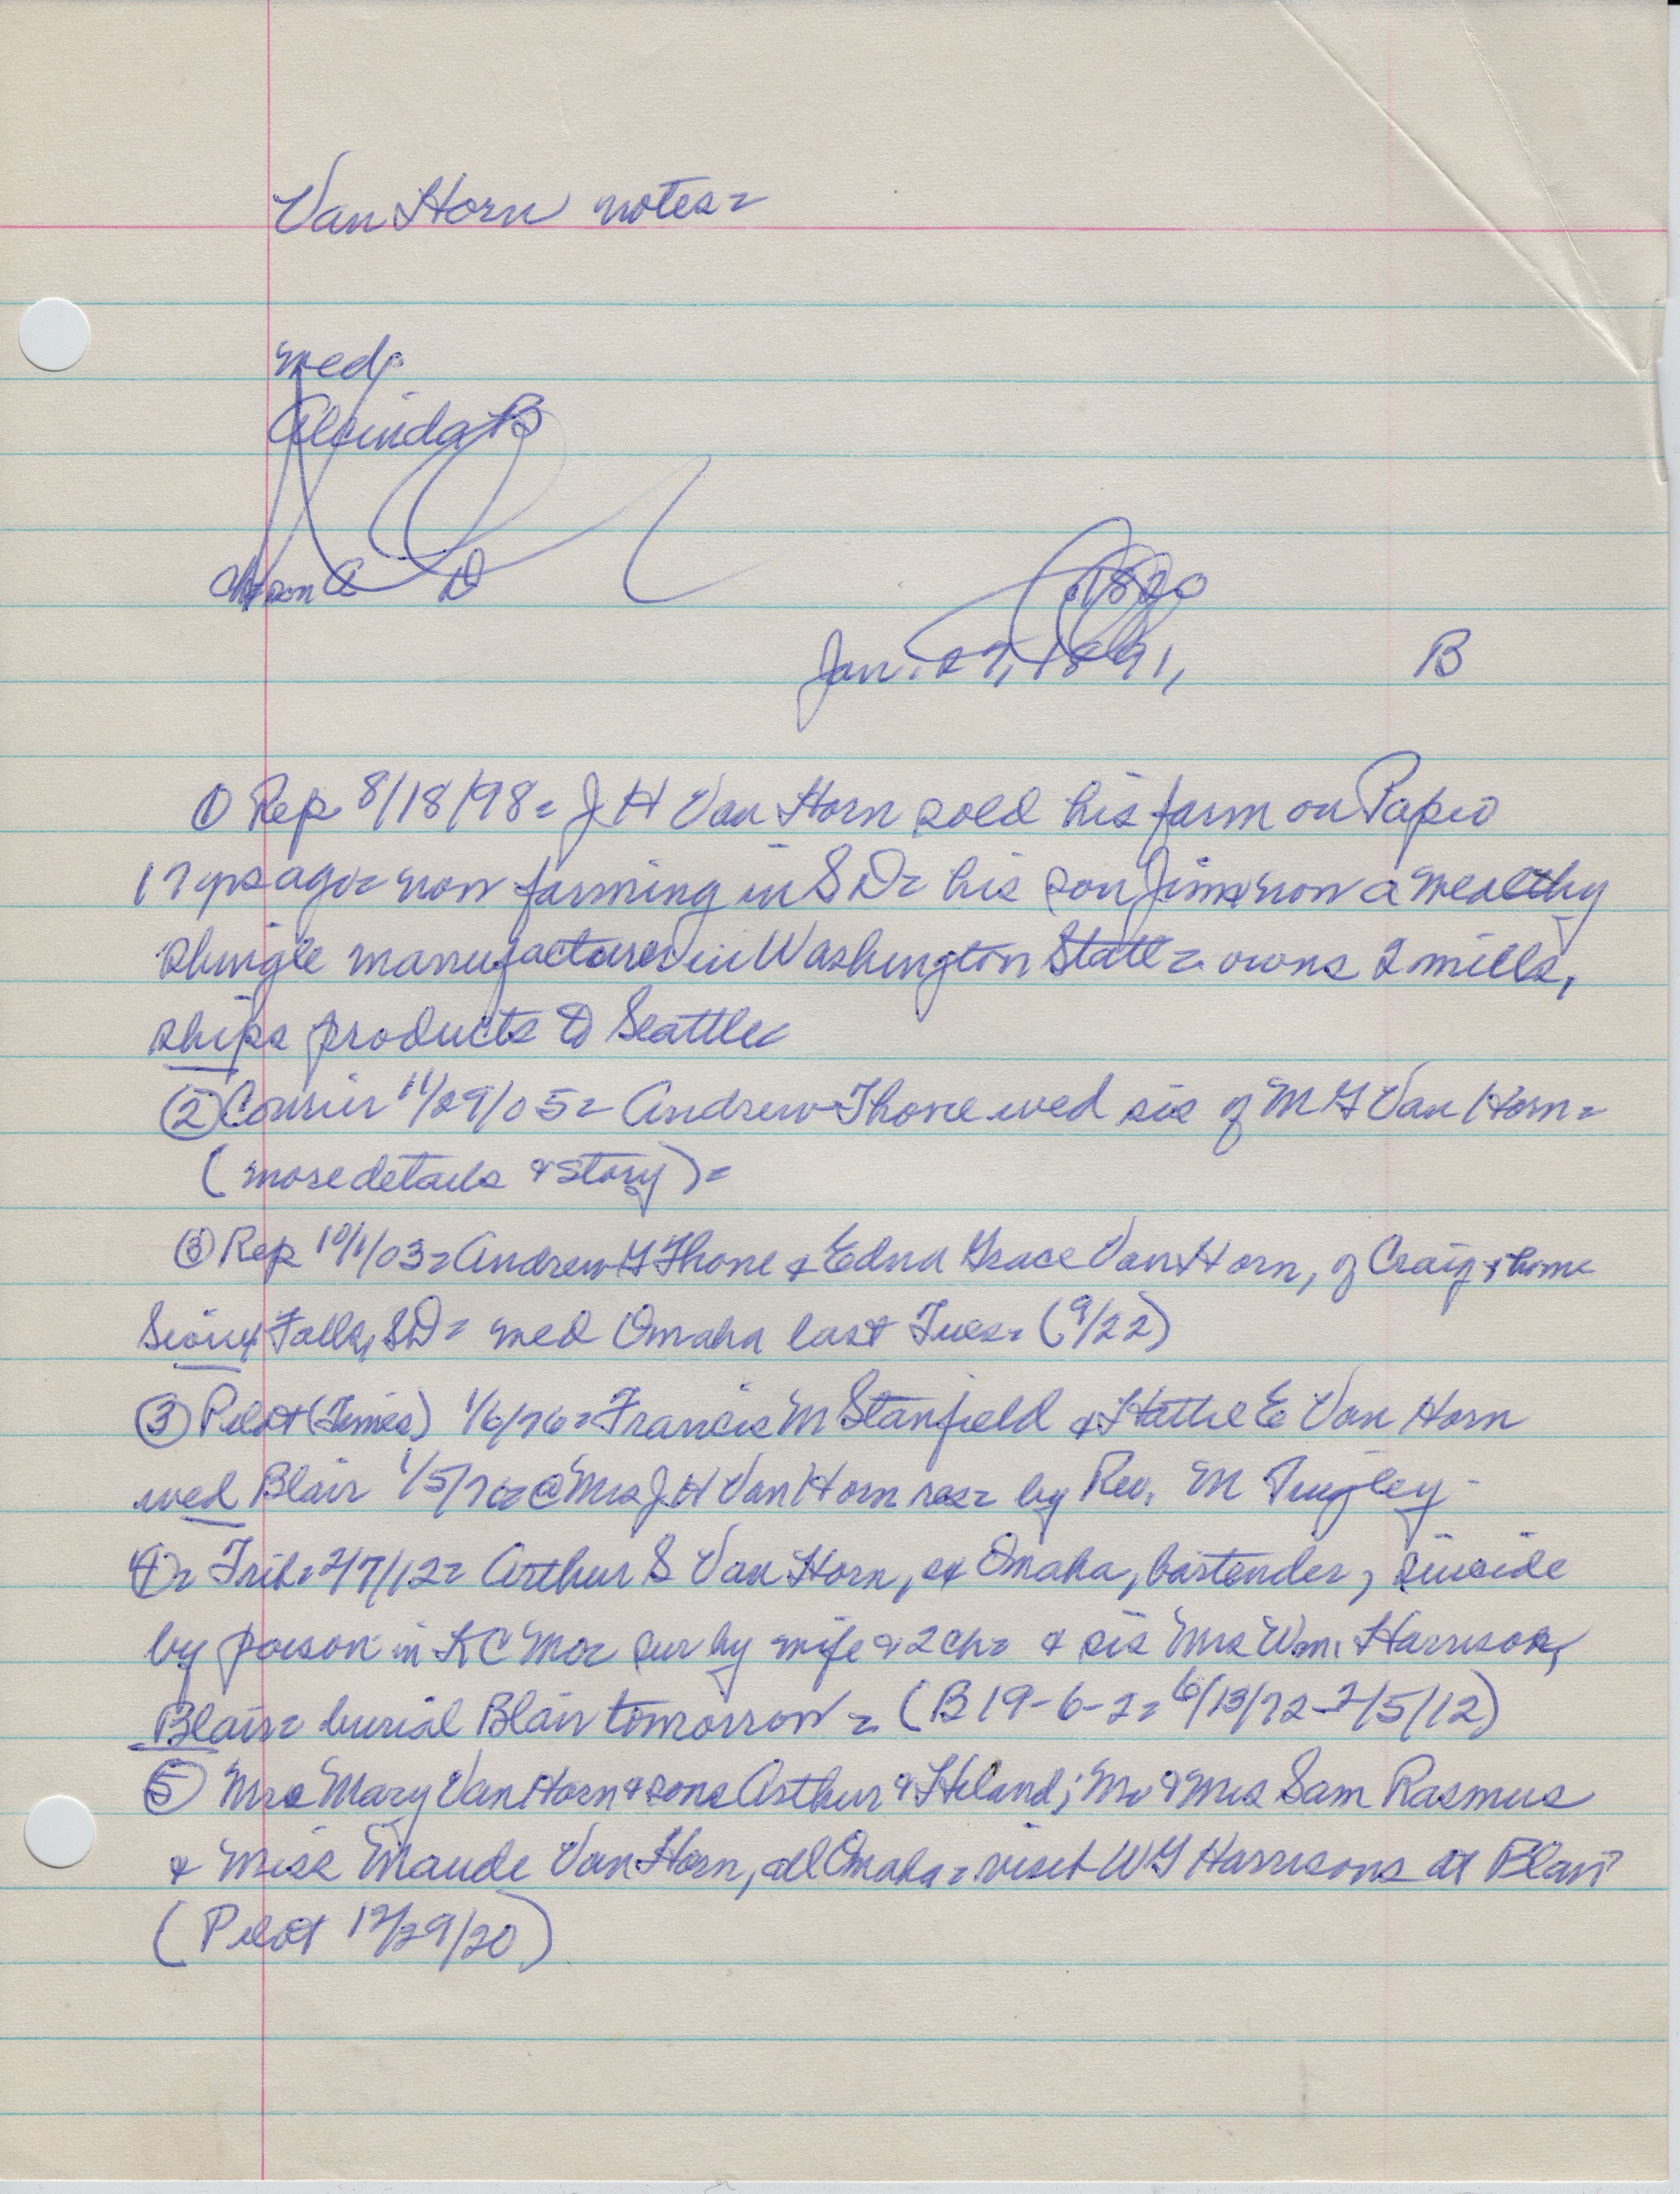 Van Horn notes=
wed
Alcinda B
D
1820
Jan. 27, 1891,
B
① Rep 8/18/98= J H Van Horn sold his farm on Papio
17 yrs ago= now farming in S D= his son Jim now a wealthy
shingle manufacturer in Washington State= owns 2 mills,
ships products to Seattle
② Courier 11/29/05= Andrew Thone wed sis of M G Van Horn=
(more details & story)=
③ Rep 10/1/03= Andrew G Thone & Edna Grace Van Horn, of Craig & home
Sioux Falls, SD= wed Omaha last Tues= (9/22)
③ Pilot (Times) 1/6/76= Francis M Stanfield & Hattie E Van Horn
wed Blair 1/5/76 @ Mrs J H Van Horn res= by Rev. M Tingley-
4= Trib= 2/7/12= Arthur S Van Horn, ex Omaha, bartender, suicide
by poison in KC Mo= sur by wife & 2 ch= & sis Mrs Wm. Harrison,
Blair= burial Blair tomorrow = (B 19-6-2= 6/13/72-2/5/12)
⑤ Mrs Mary Van Horn & sons Arthur & Heland; Mr & Mrs Sam Rasmus
& Miss Maude Van Horn, all Omaha= visit W G Harrisons at Blair
(Pilot 12/29/20)